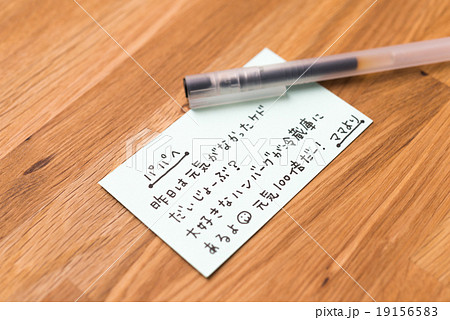 パパへ
昨日は元気がなかったケド
だいじょーぶ？
大好きなハンバーグが冷蔵庫に
あるよ☺ 元気100倍だー！
ママより
PIXTA
19156583